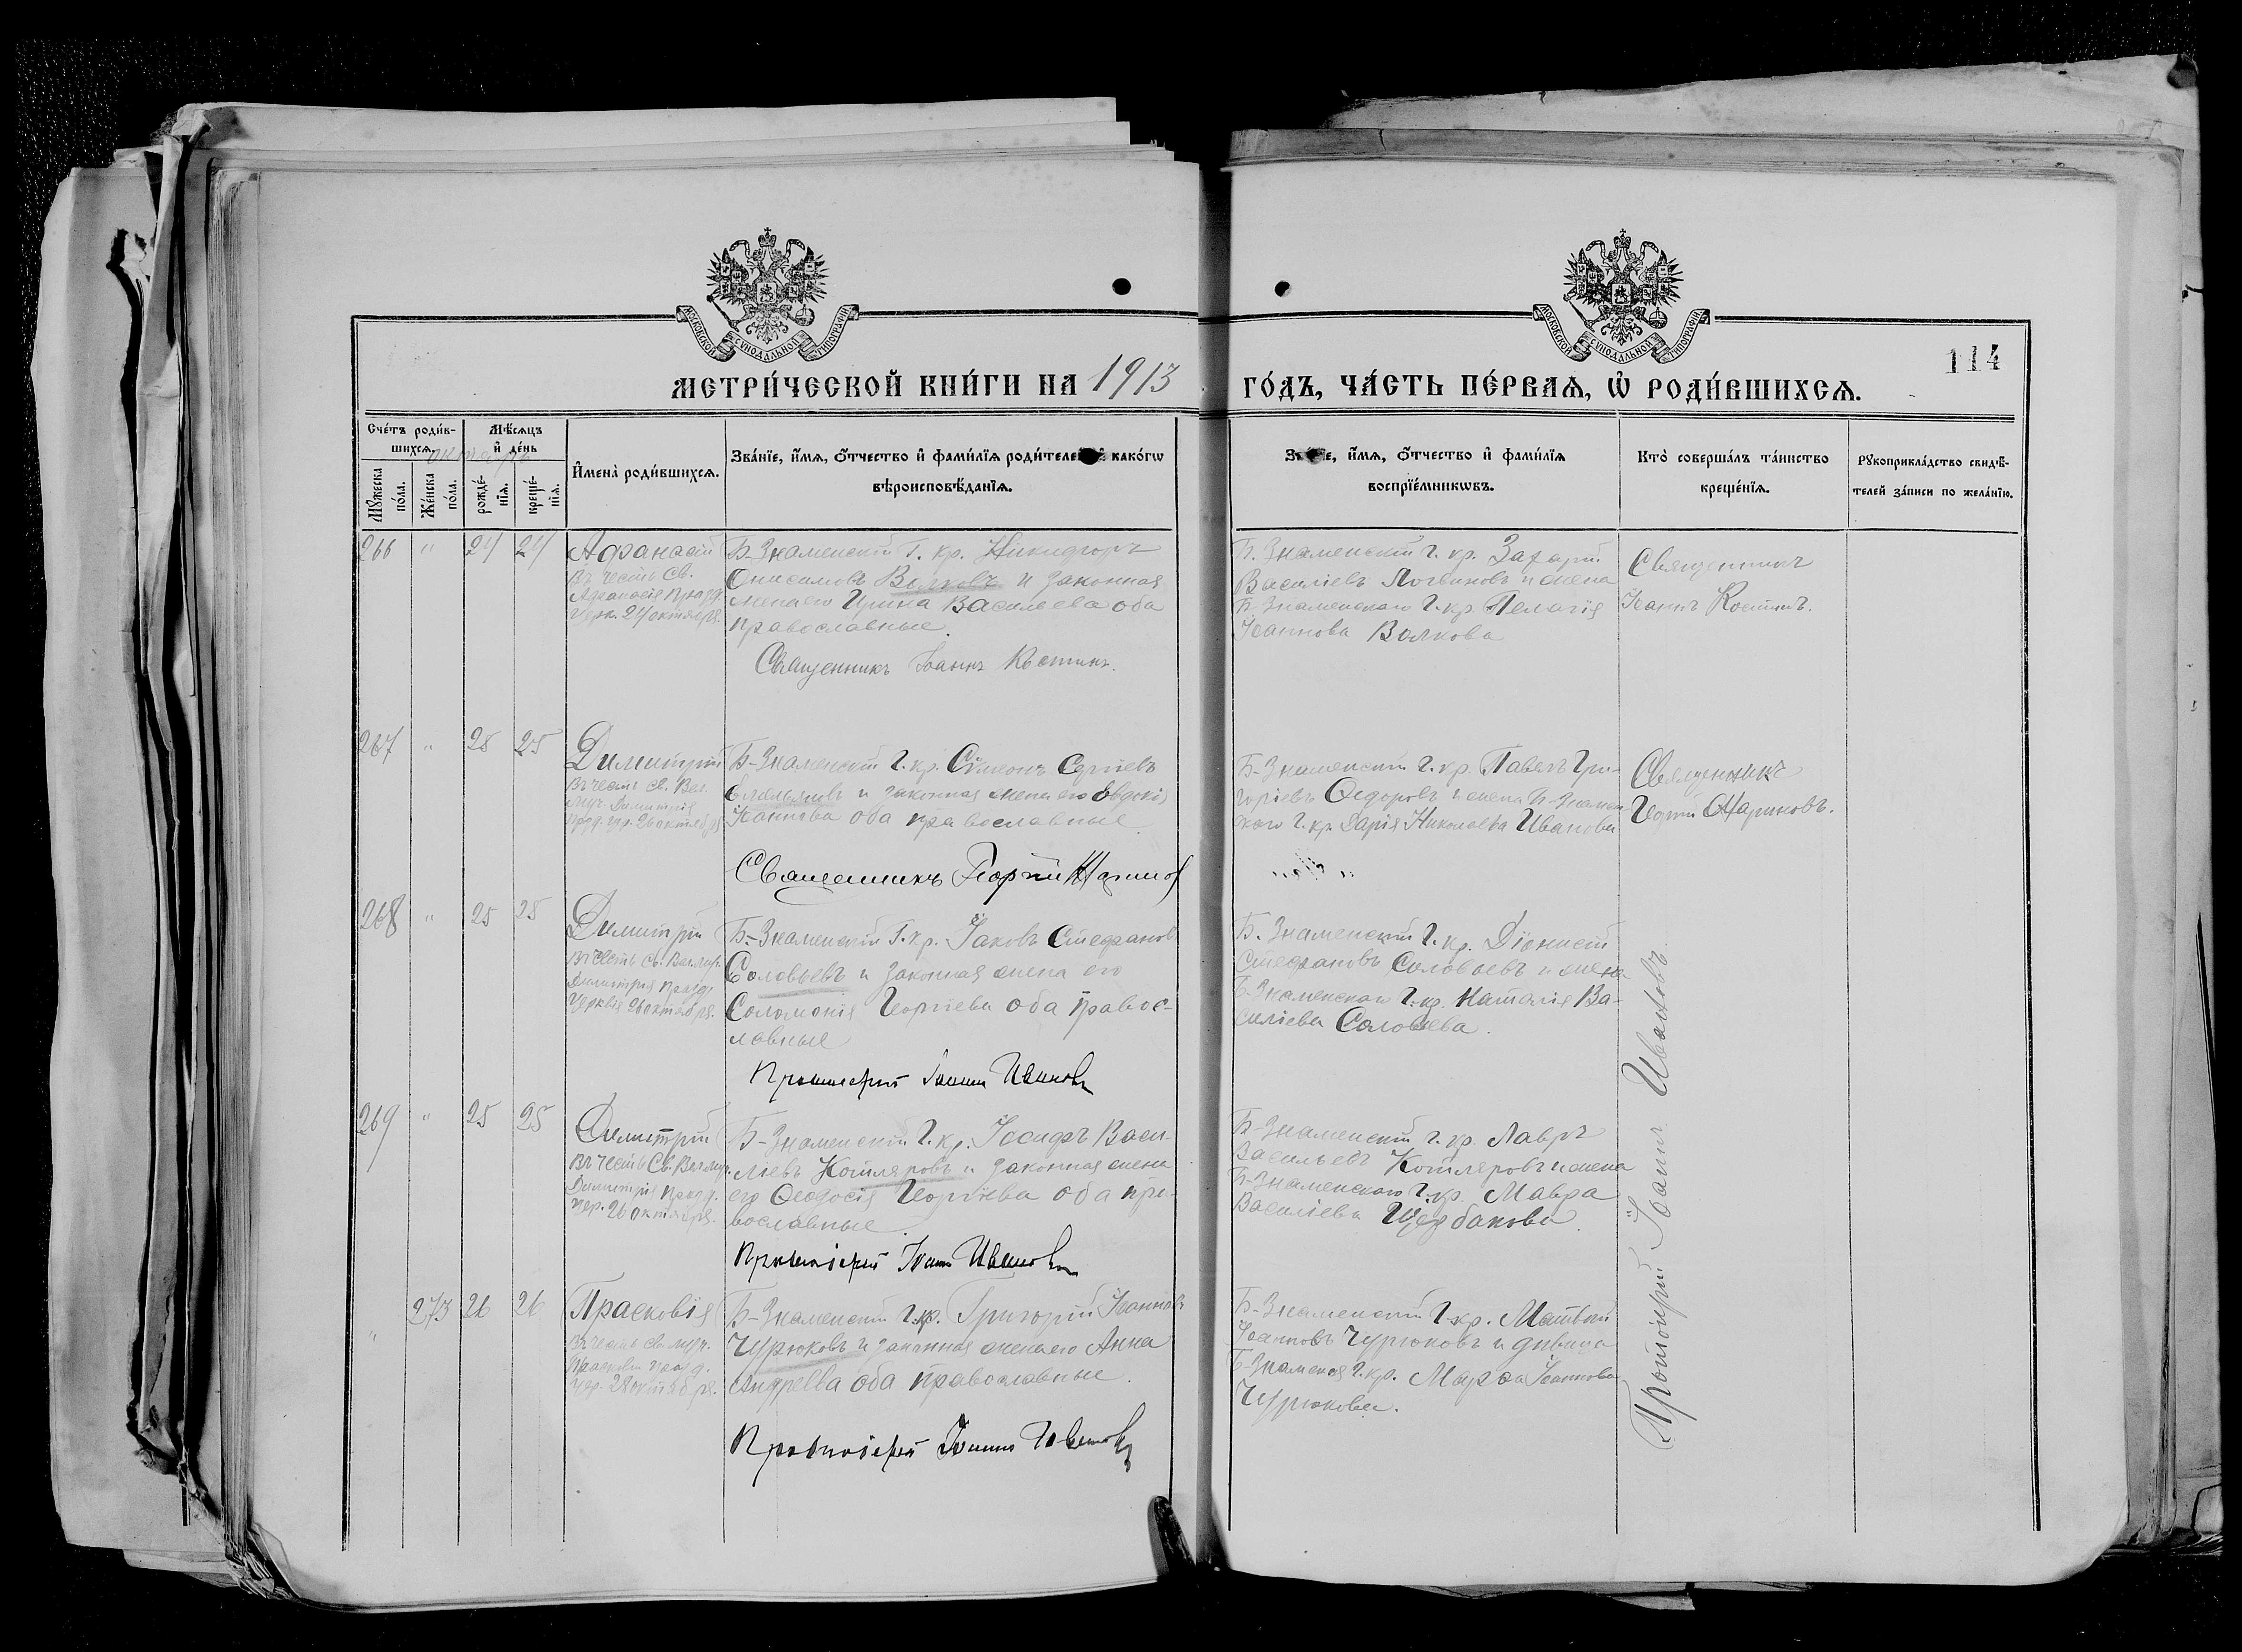 МОСКОВСКОЙ СѴНОДАЛЬНОЙ ТИПОГРАФІИ
МОСКОВСКОЙ СѴНОДАЛЬНОЙ ТИПОГРАФІИ
114
МЕТРИ́ЧЕСКОЙ КНИ́ГИ НА 1913 ГО́ДЪ, ЧА́СТЬ ПЕ́РВАѦ, Ѡ҆ РОДИ́ВШИХСѦ.
Сче́тъ роди́в-
шихсѧ.
Мѣ́сѧцъ
и҆ де́нь
октябрь
Мꙋ́жеска
по́ла.
Же́нска
по́ла.
рожде́-
нїѧ.
креще́-
нїѧ.
И҆мена̀ роди́вшихсѧ.
Зва́нїе, и҆́мѧ, ѻ҆́тчество и҆ фами́лїѧ роди́телей, и҆ како́гѡ
вѣроисповѣ́данїѧ.
и҆́мѧ, ѻ҆́тчество и҆ фами́лїѧ
воспрїе́мникѡвъ.
Кто̀ соверша́лъ та́инство
креще́нїѧ.
Рꙋкоприкла́дство свидѣ́-
телей за́писи по жела́нїю.
266 " 24 24
Афанасій
Въ честь Св.
Афанасія празд.
церк. 24 октября.
Б-Знаменскій Г. кр. Никифоръ
Онисимовъ Волковъ и законная
жена его Ирина Васильева оба
православные.
Священникъ Іоаннъ Костинъ.
Б. Знаменскій Г. кр. Захарій
Василіевъ Логвиновъ и жена
Б. Знаменскаго Г. кр. Пелагія
Іоаннова Волкова
Священникъ
Іоаннъ Костинъ.
267 " 25 25
Димитрій
Въ честь Св. Вел.
муч. Димитрія
празд. цер. 26 октября
Б-Знаменскій Г. кр. Сѵмеонъ Сергіевъ
Емельяновъ и законная жена его Евдокія
Іоаннова оба православные.
Священникъ Георгій
Б-Знаменскій Г. кр. Павелъ Гри-
горіевъ Ѳедоровъ и жена Б-Знамен-
скаго Г. кр. Дарія Николаева Иванова
Священникъ
Георгій
268 " 25 25
Димитрій
Въ честь Св. Вел. муч.
Димитрія празд.
Церквія 26 октября.
Б.-Знаменскій Г. кр. Іаковъ Стефановъ
Соловьевъ и законная жена его
Соломонія Георгіева оба правос-
лавные
Протоіерей Іоаннъ Ивановъ
Б. Знаменскій Г. кр. Діонисій
Стефановъ Соловьевъ и жена
Б-Знаменскаго Г. кр. Наталія Ва-
силіева Соловьева.
269 " 25 25
Димитрій
Въ честь Св. Вел. муч.
Димитрія празд.
цер. 26 октября.
Б-Знаменскій Г. кр. Іосифъ Васи-
ліевъ Котляровъ и законная жена
его Ѳеодосія Георгіева оба пра-
вославные.
Протоіерей Іоаннъ Ивановъ
Б-Знаменскій Г. кр. Лавръ
Васильевъ Котляровъ и жена
Б-Знаменскаго Г. кр. Мавра
Василіева Щербакова.
" 273 26 26
Прасковія
Въ честь Св. муч.
празд.
цер. 28 октября.
Б-Знаменскій Г. кр. Григорій Іоанновъ
Чурюковъ и законная жена его Анна
Андреева оба православные.
Протоіерей Іоаннъ Ивановъ
Б-Знаменскій Г. кр. Матвій
Іоанновъ Чурюковъ и дѣвица
Б-Знаменск Г. кр. Марѳа Іоаннова
Чурюкова.
Протоіерей Іоаннъ Ивановъ